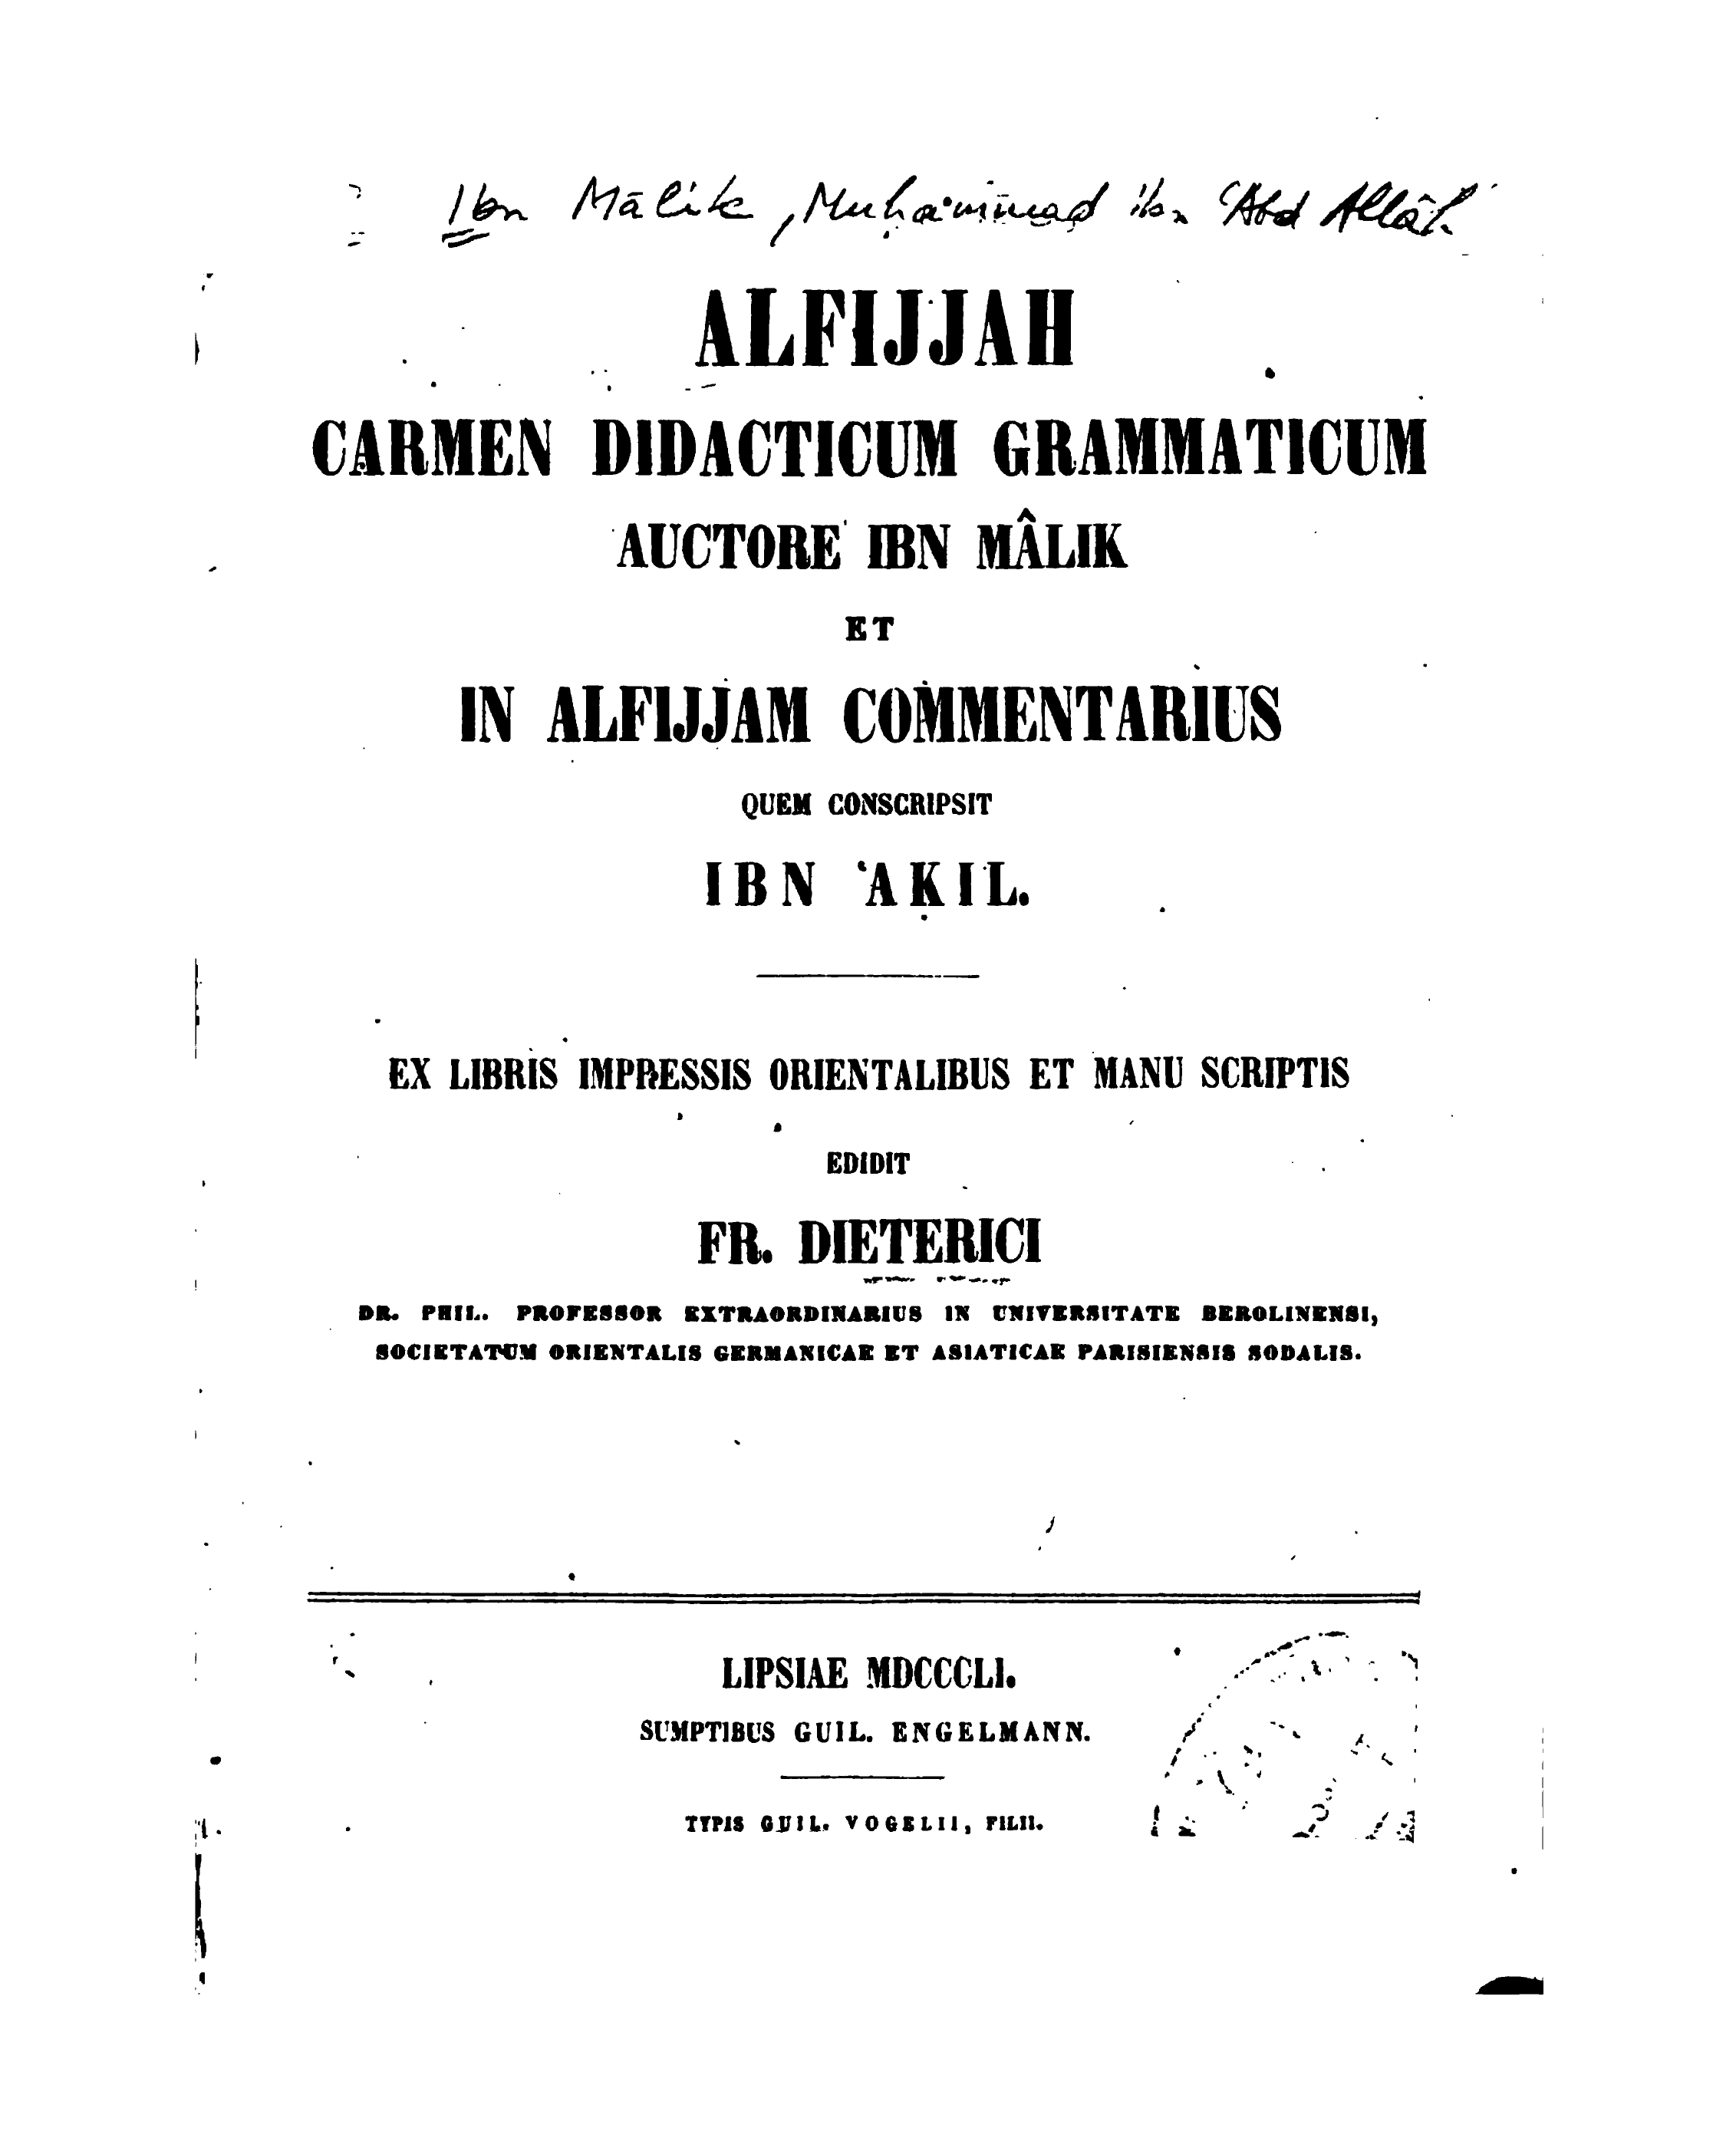 Ibn Mālik, Muḥammad ibn ʿAbd Allāh
ALFIJJAH
CARMEN DIDACTICUM GRAMMATICUM
AUCTORE IBN MÂLIK
ET
IN ALFIJJAM COMMENTARIUS
QUEM CONSCRIPSIT
IBN ʿAḲIL.
EX LIBRIS IMPRESSIS ORIENTALIBUS ET MANU SCRIPTIS
EDIDIT
FR. DIETERICI
DR. PHIL. PROFESSOR EXTRAORDINARIUS IN UNIVERSITATE BEROLINENSI,
SOCIETATUM ORIENTALIS GERMANICAE ET ASIATICAE PARISIENSIS SODALIS.
LIPSIAE MDCCCLI.
SUMPTIBUS GUIL. ENGELMANN.
TYPIS GUIL. VOGELII, FILII.